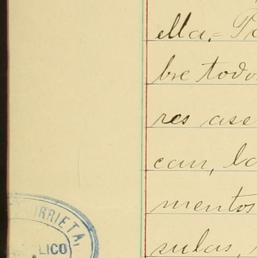 ella.=
bre todo
res ase
can, la
mentos
sulas,
URRIETA,
LICO